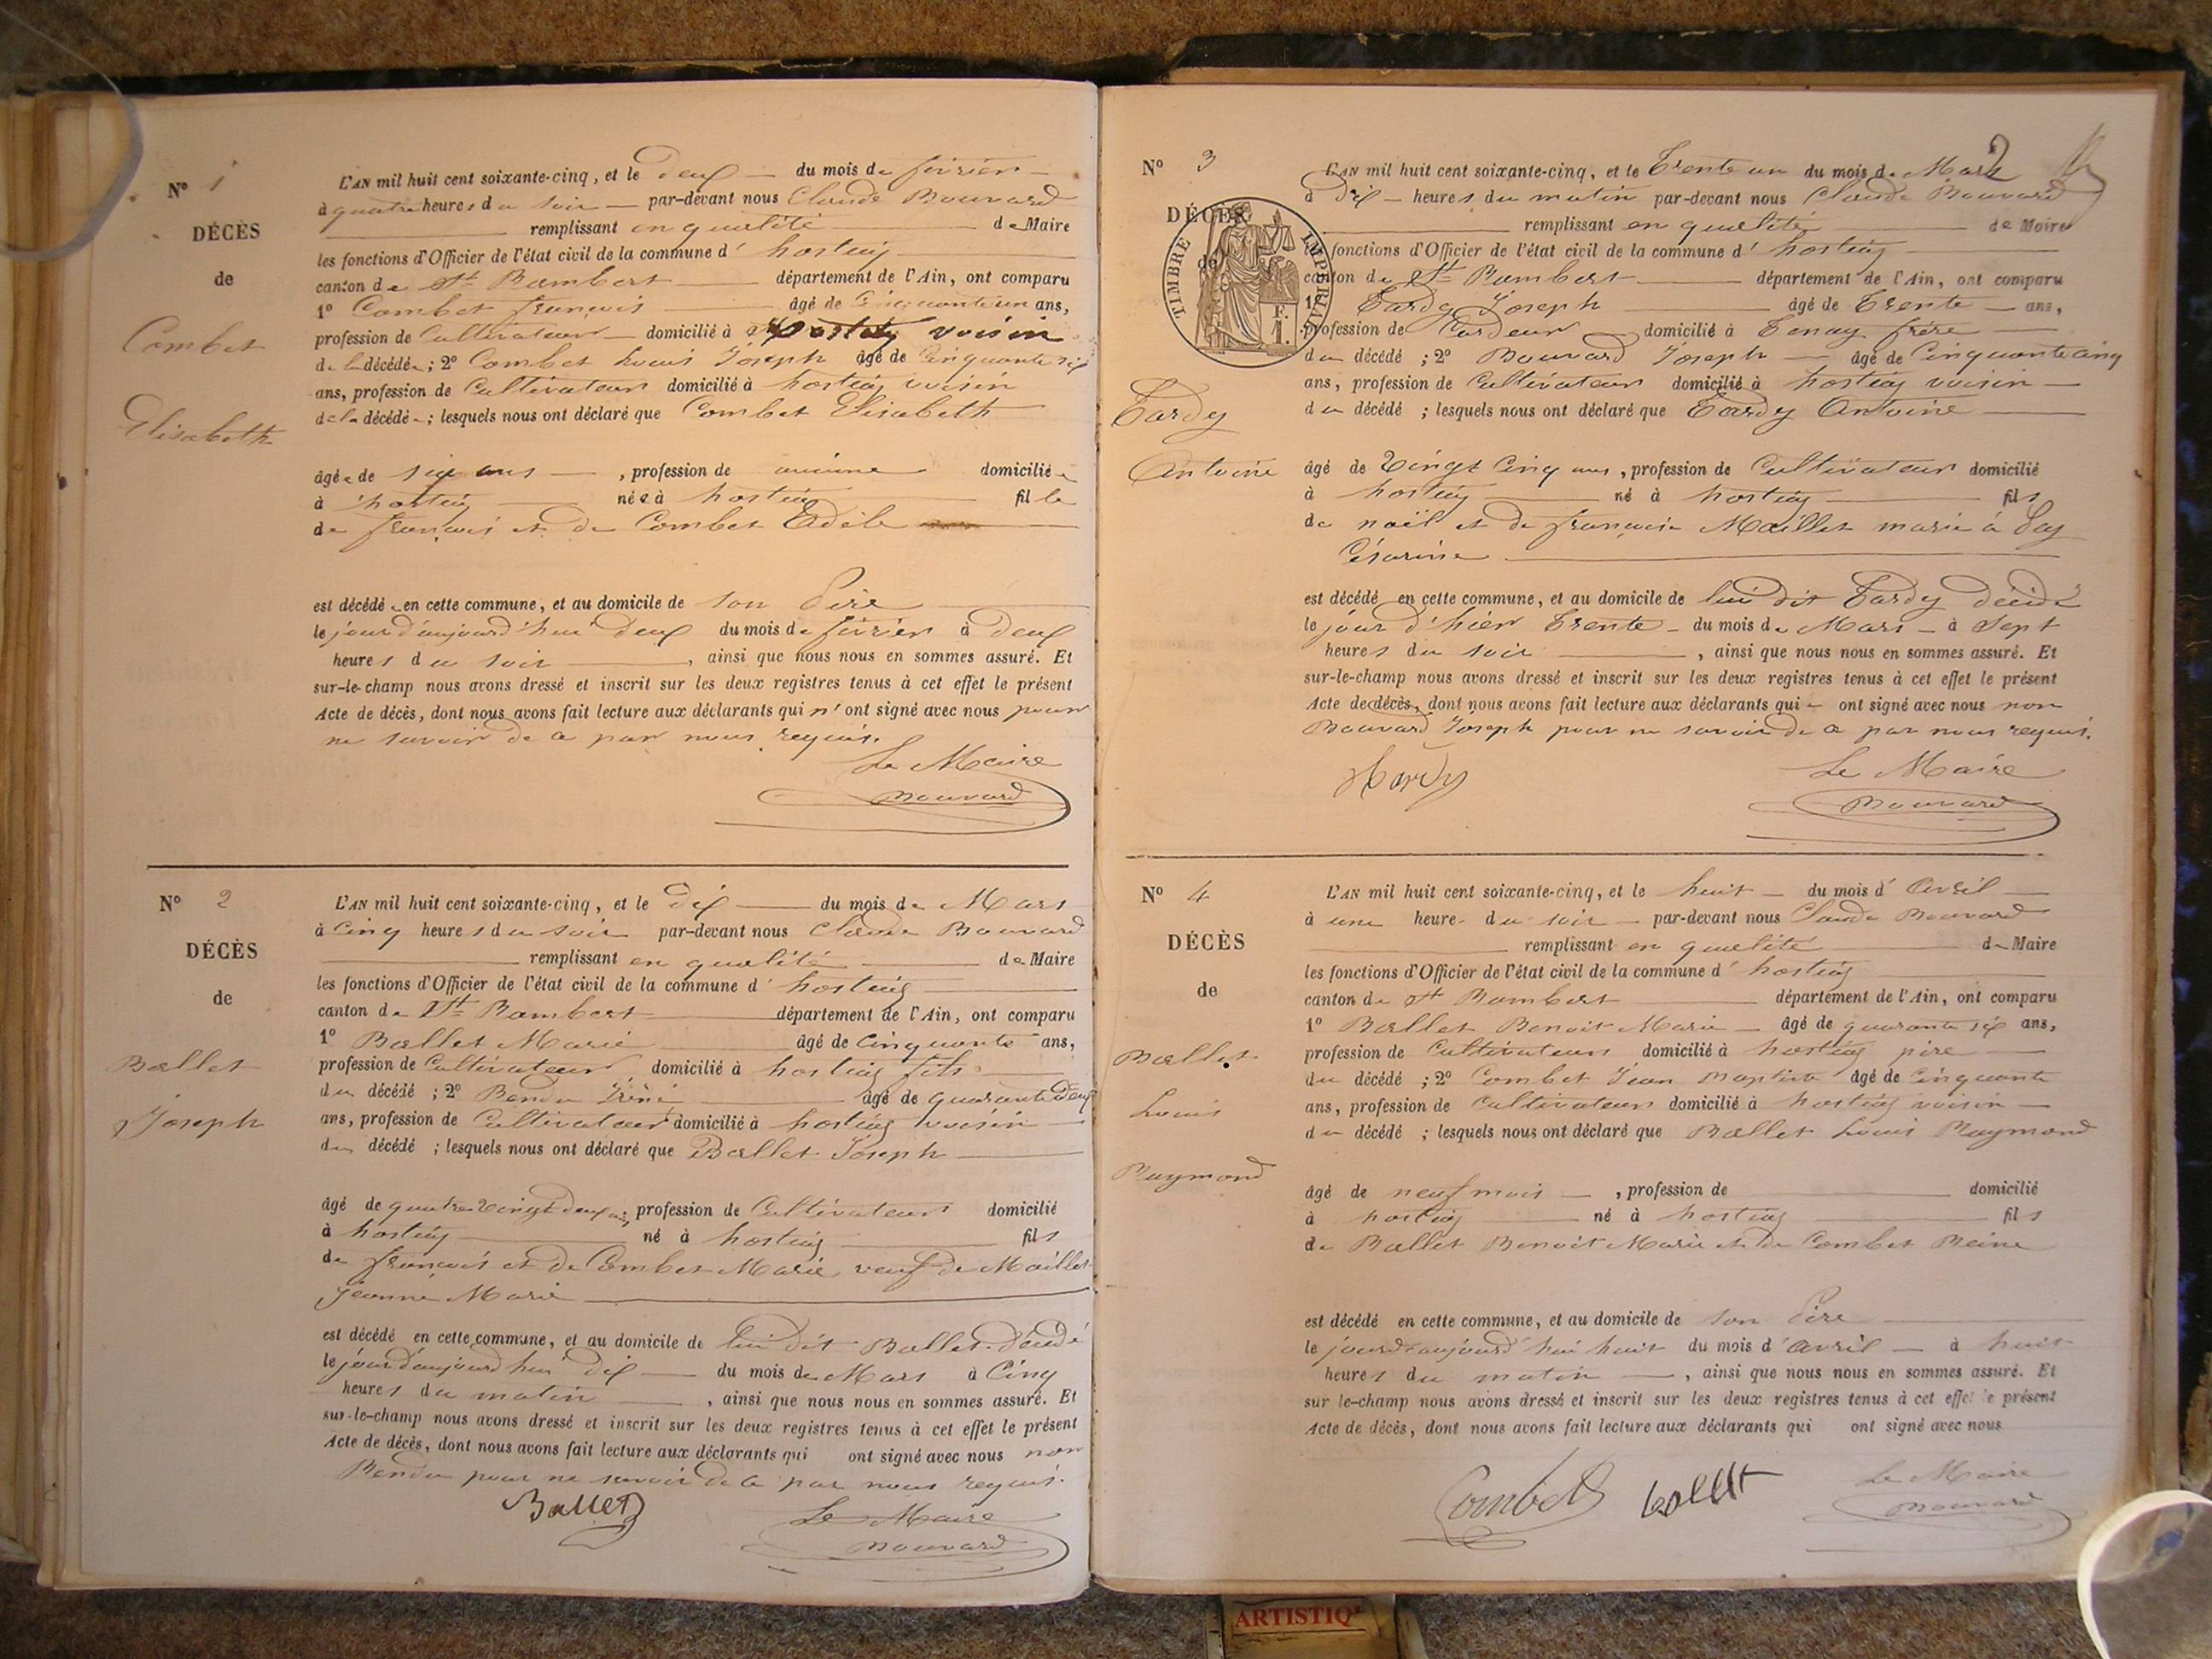 Nº 1
DÉCÈS
de
Combet
Elisabeth
L'AN mil huit cent soixante-cinq, et le deux du mois de février
à quatre heures du soir par-devant nous Claude Bouvard
remplissant en qualité de Maire
les fonctions d'Officier de l'état civil de la commune d' hostiaz
canton de St Rambert département de l'Ain, ont comparu
1º Combet françois âgé de Cinquante un ans,
profession de Cultivateur domicilié à hostiaz voisin
de la décédée ; 2º Combet Louis Joseph âgé de Cinquante six
ans, profession de Cultivateur domicilié à hostiaz voisin
de la décédée ; lesquels nous ont déclaré que Combet Elisabeth
âgée de six ans , profession de aucune domiciliée
à hostiaz née à hostiaz fille
de françois et de Combet Edèle
est décédée en cette commune, et au domicile de son Père
le jour d'aujourd'hui deux du mois de février à deux
heures du soir , ainsi que nous nous en sommes assuré. Et
sur-le-champ nous avons dressé et inscrit sur les deux registres tenus à cet effet le présent
Acte de décès, dont nous avons fait lecture aux déclarants qui n'ont signé avec nous pour
ne savoir de ce par nous requis.
Le Maire
Bouvard
Nº 2
DÉCÈS
de
Ballet
Joseph
L'AN mil huit cent soixante-cinq, et le dix du mois de Mars
à Cinq heures du soir par-devant nous Claude Bouvard
remplissant en qualité de Maire
les fonctions d'Officier de l'état civil de la commune d' hostiaz
canton de St Rambert département de l'Ain, ont comparu
1º Ballet Marie âgé de Cinquante ans,
profession de Cultivateur domicilié à hostiaz fils
du décédé ; 2º Bendu Iréné âgé de quarante deux
ans, profession de Cultivateur domicilié à hostiaz voisin
du décédé ; lesquels nous ont déclaré que Ballet Joseph
âgé de quatre vingt deux ans profession de Cultivateur domicilié
à hostiaz né à hostiaz fils
de françois et de Combet Marie veuf de Maillet
Jeanne Marie
est décédé en cette commune, et au domicile de lui dit Ballet décédé
le jour d'aujourd'hui dix du mois de Mars à Cinq
heures du matin , ainsi que nous nous en sommes assuré. Et
sur-le-champ nous avons dressé et inscrit sur les deux registres tenus à cet effet le présent
Acte de décès, dont nous avons fait lecture aux déclarants qui ont signé avec nous non
Bendu pour ne savoir de ce par nous requis.
Ballet
Le Maire
Bouvard
2
Nº 3
DÉCÈS
de
TIMBRE IMPERIAL
F.
1.
Tardy
Antoine
L'AN mil huit cent soixante-cinq, et le Trente un du mois de Mars
à Dix heures du matin par-devant nous Claude Bouvard
remplissant en qualité de Maire
les fonctions d'Officier de l'état civil de la commune d' hostiaz
canton de St Rambert département de l'Ain, ont comparu
1º Tardy Joseph âgé de Trente ans,
profession de Cardeur domicilié à Tenay frère
du décédé ; 2º Bouvard Joseph âgé de Cinquante cinq
ans, profession de Cultivateur domicilié à hostiaz voisin
du décédé ; lesquels nous ont déclaré que Tardy Antoine
âgé de Vingt Cinq ans, profession de Cultivateur domicilié
à hostiaz né à hostiaz fils
de noël et de françoise Maillet marié à
Césarine
est décédé en cette commune, et au domicile de lui dit Tardy décédé
le jour d'hier Trente du mois de Mars à Sept
heures du soir , ainsi que nous nous en sommes assuré. Et
sur-le-champ nous avons dressé et inscrit sur les deux registres tenus à cet effet le présent
Acte de décès, dont nous avons fait lecture aux déclarants qui ont signé avec nous non
Bouvard Joseph pour ne savoir de ce par nous requis.
tardy
Le Maire
Bouvard
Nº 4
DÉCÈS
de
Ballet
Louis
Raymond
L'AN mil huit cent soixante-cinq, et le huit du mois d' Avril
à une heure du soir par-devant nous Claude Bouvard
remplissant en qualité de Maire
les fonctions d'Officier de l'état civil de la commune d' hostiaz
canton de St Rambert département de l'Ain, ont comparu
1º Ballet Benoit Marie âgé de quarante six ans,
profession de Cultivateur domicilié à hostiaz père
du décédé ; 2º Combet Jean Baptiste âgé de Cinquante
ans, profession de Cultivateur domicilié à hostiaz voisin
du décédé ; lesquels nous ont déclaré que Ballet Louis Raymond
âgé de neuf mois , profession de domicilié
à hostiaz né à hostiaz fils
de Ballet Benoit Marie et de Combet Reine
est décédé en cette commune, et au domicile de son Père
le jour d'aujourd'hui huit du mois d' Avril à huit
heures du matin , ainsi que nous nous en sommes assuré. Et
sur le-champ nous avons dressé et inscrit sur les deux registres tenus à cet effet le présent
Acte de décès, dont nous avons fait lecture aux déclarants qui ont signé avec nous
Combet ballet
Le Maire
Bouvard
ARTISTIQ